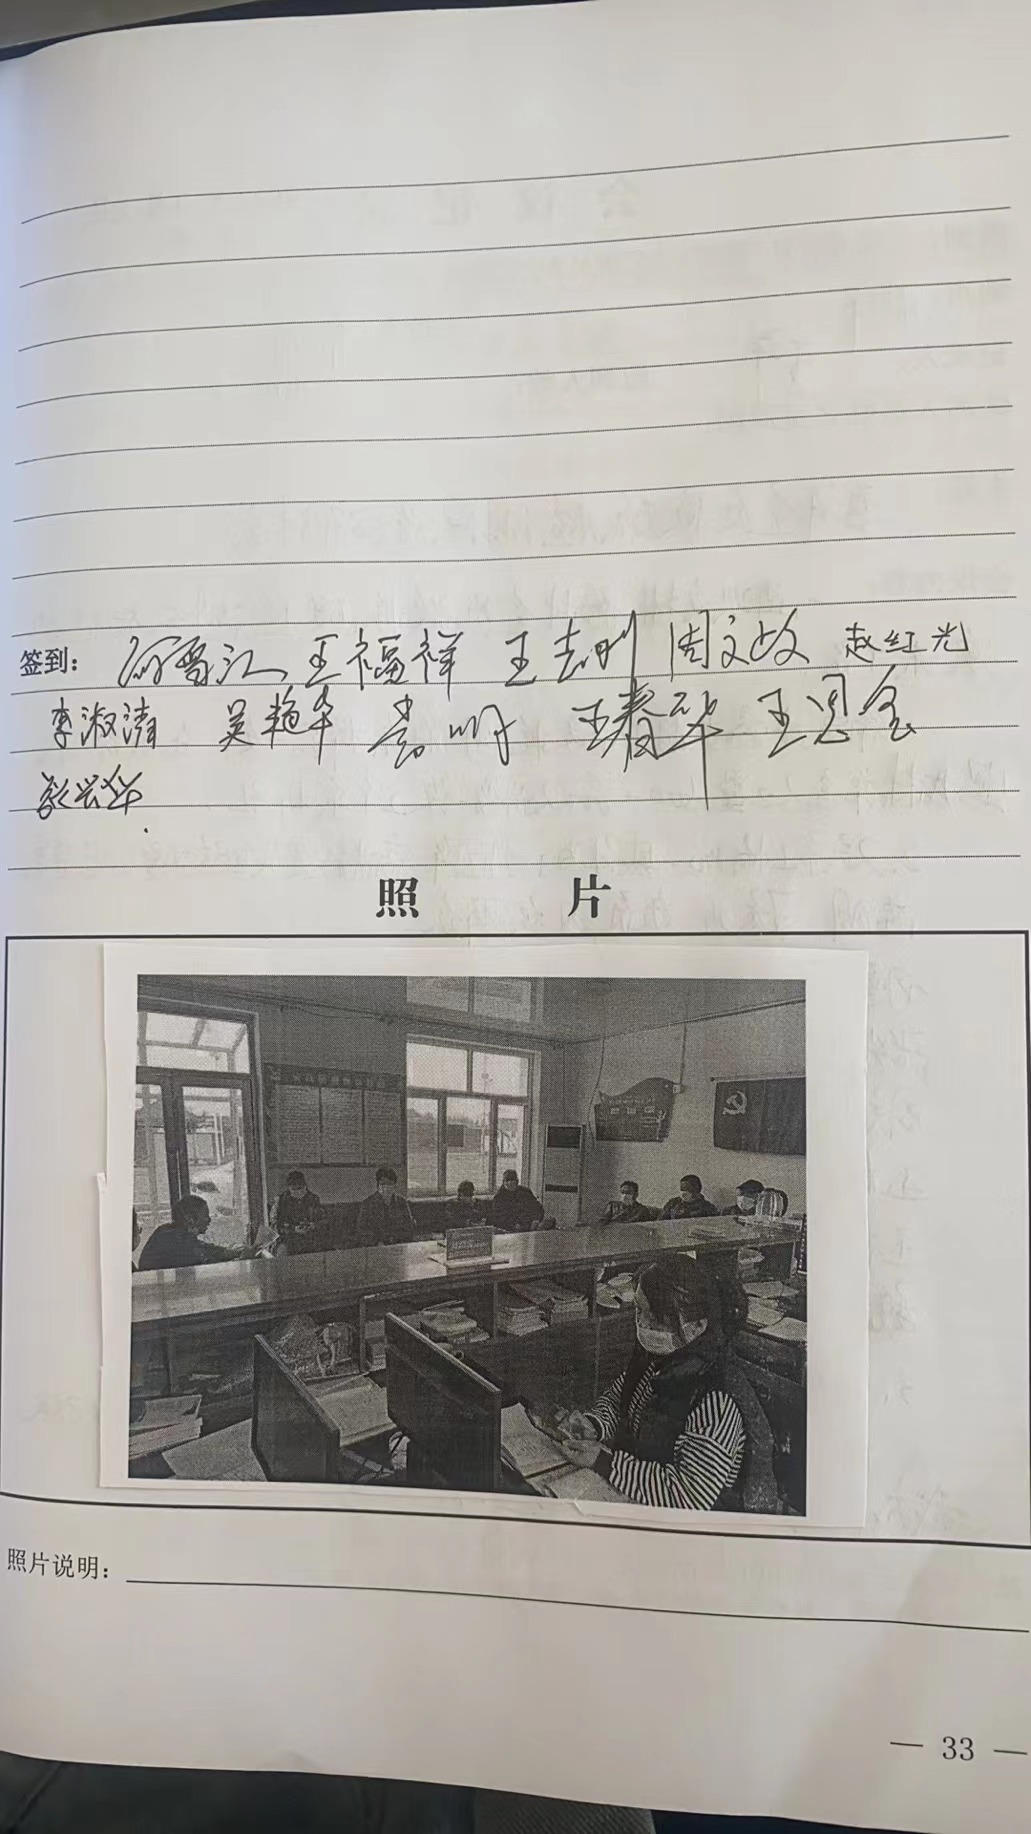 签到： 王福祥 王志刚 周文政 赵红光
李淑清 吴艳华 袁明 王春华 王恩全
张兴华
照 片
照片说明：
— 33 —